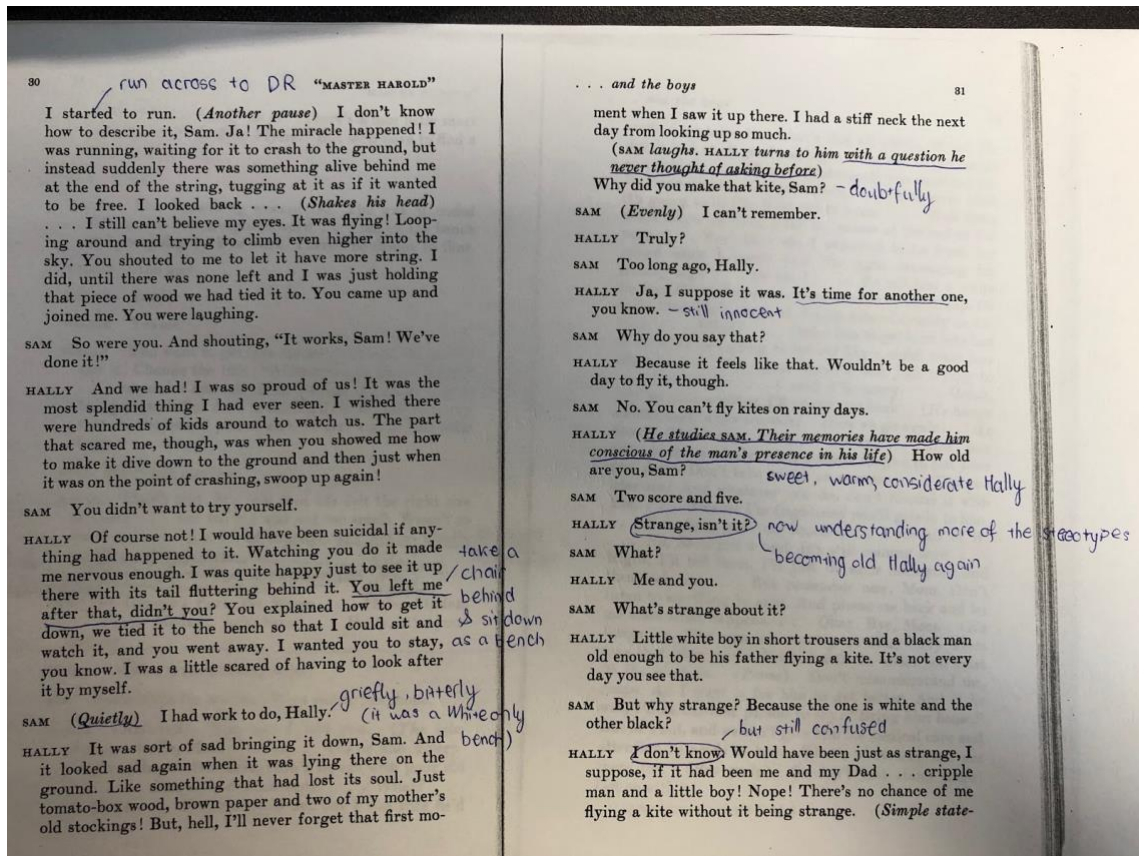 run across to DR
30 "MASTER HAROLD"
I started to run. (Another pause) I don't know
how to describe it, Sam. Ja! The miracle happened! I
was running, waiting for it to crash to the ground, but
instead suddenly there was something alive behind me
at the end of the string, tugging at it as if it wanted
to be free. I looked back . . . (Shakes his head)
. . . I still can't believe my eyes. It was flying! Loop-
ing around and trying to climb even higher into the
sky. You shouted to me to let it have more string. I
did, until there was none left and I was just holding
that piece of wood we had tied it to. You came up and
joined me. You were laughing.
SAM So were you. And shouting, "It works, Sam! We've
done it!"
HALLY And we had! I was so proud of us! It was the
most splendid thing I had ever seen. I wished there
were hundreds of kids around to watch us. The part
that scared me, though, was when you showed me how
to make it dive down to the ground and then just when
it was on the point of crashing, swoop up again!
SAM You didn't want to try yourself.
HALLY Of course not! I would have been suicidal if any-
thing had happened to it. Watching you do it made
me nervous enough. I was quite happy just to see it up
there with its tail fluttering behind it. You left me
after that, didn't you? You explained how to get it
down, we tied it to the bench so that I could sit and
watch it, and you went away. I wanted you to stay,
you know. I was a little scared of having to look after
it by myself.
take a
chair
behind
& sit down
as a bench
SAM (Quietly) I had work to do, Hally.
griefly, bitterly
(it was a White only
bench)
HALLY It was sort of sad bringing it down, Sam. And
it looked sad again when it was lying there on the
ground. Like something that had lost its soul. Just
tomato-box wood, brown paper and two of my mother's
old stockings! But, hell, I'll never forget that first mo-
. . . and the boys 31
ment when I saw it up there. I had a stiff neck the next
day from looking up so much.
(SAM laughs. HALLY turns to him with a question he
never thought of asking before)
Why did you make that kite, Sam? - doubtfully
SAM (Evenly) I can't remember.
HALLY Truly?
SAM Too long ago, Hally.
HALLY Ja, I suppose it was. It's time for another one,
you know. - still innocent
SAM Why do you say that?
HALLY Because it feels like that. Wouldn't be a good
day to fly it, though.
SAM No. You can't fly kites on rainy days.
HALLY (He studies SAM. Their memories have made him
conscious of the man's presence in his life) How old
are you, Sam?
sweet, warm, considerate Hally
SAM Two score and five.
HALLY Strange, isn't it? now understanding more of the stereotypes
becoming old Hally again
SAM What?
HALLY Me and you.
SAM What's strange about it?
HALLY Little white boy in short trousers and a black man
old enough to be his father flying a kite. It's not every
day you see that.
SAM But why strange? Because the one is white and the
other black?
but still confused
HALLY I don't know. Would have been just as strange, I
suppose, if it had been me and my Dad . . . cripple
man and a little boy! Nope! There's no chance of me
flying a kite without it being strange. (Simple state-